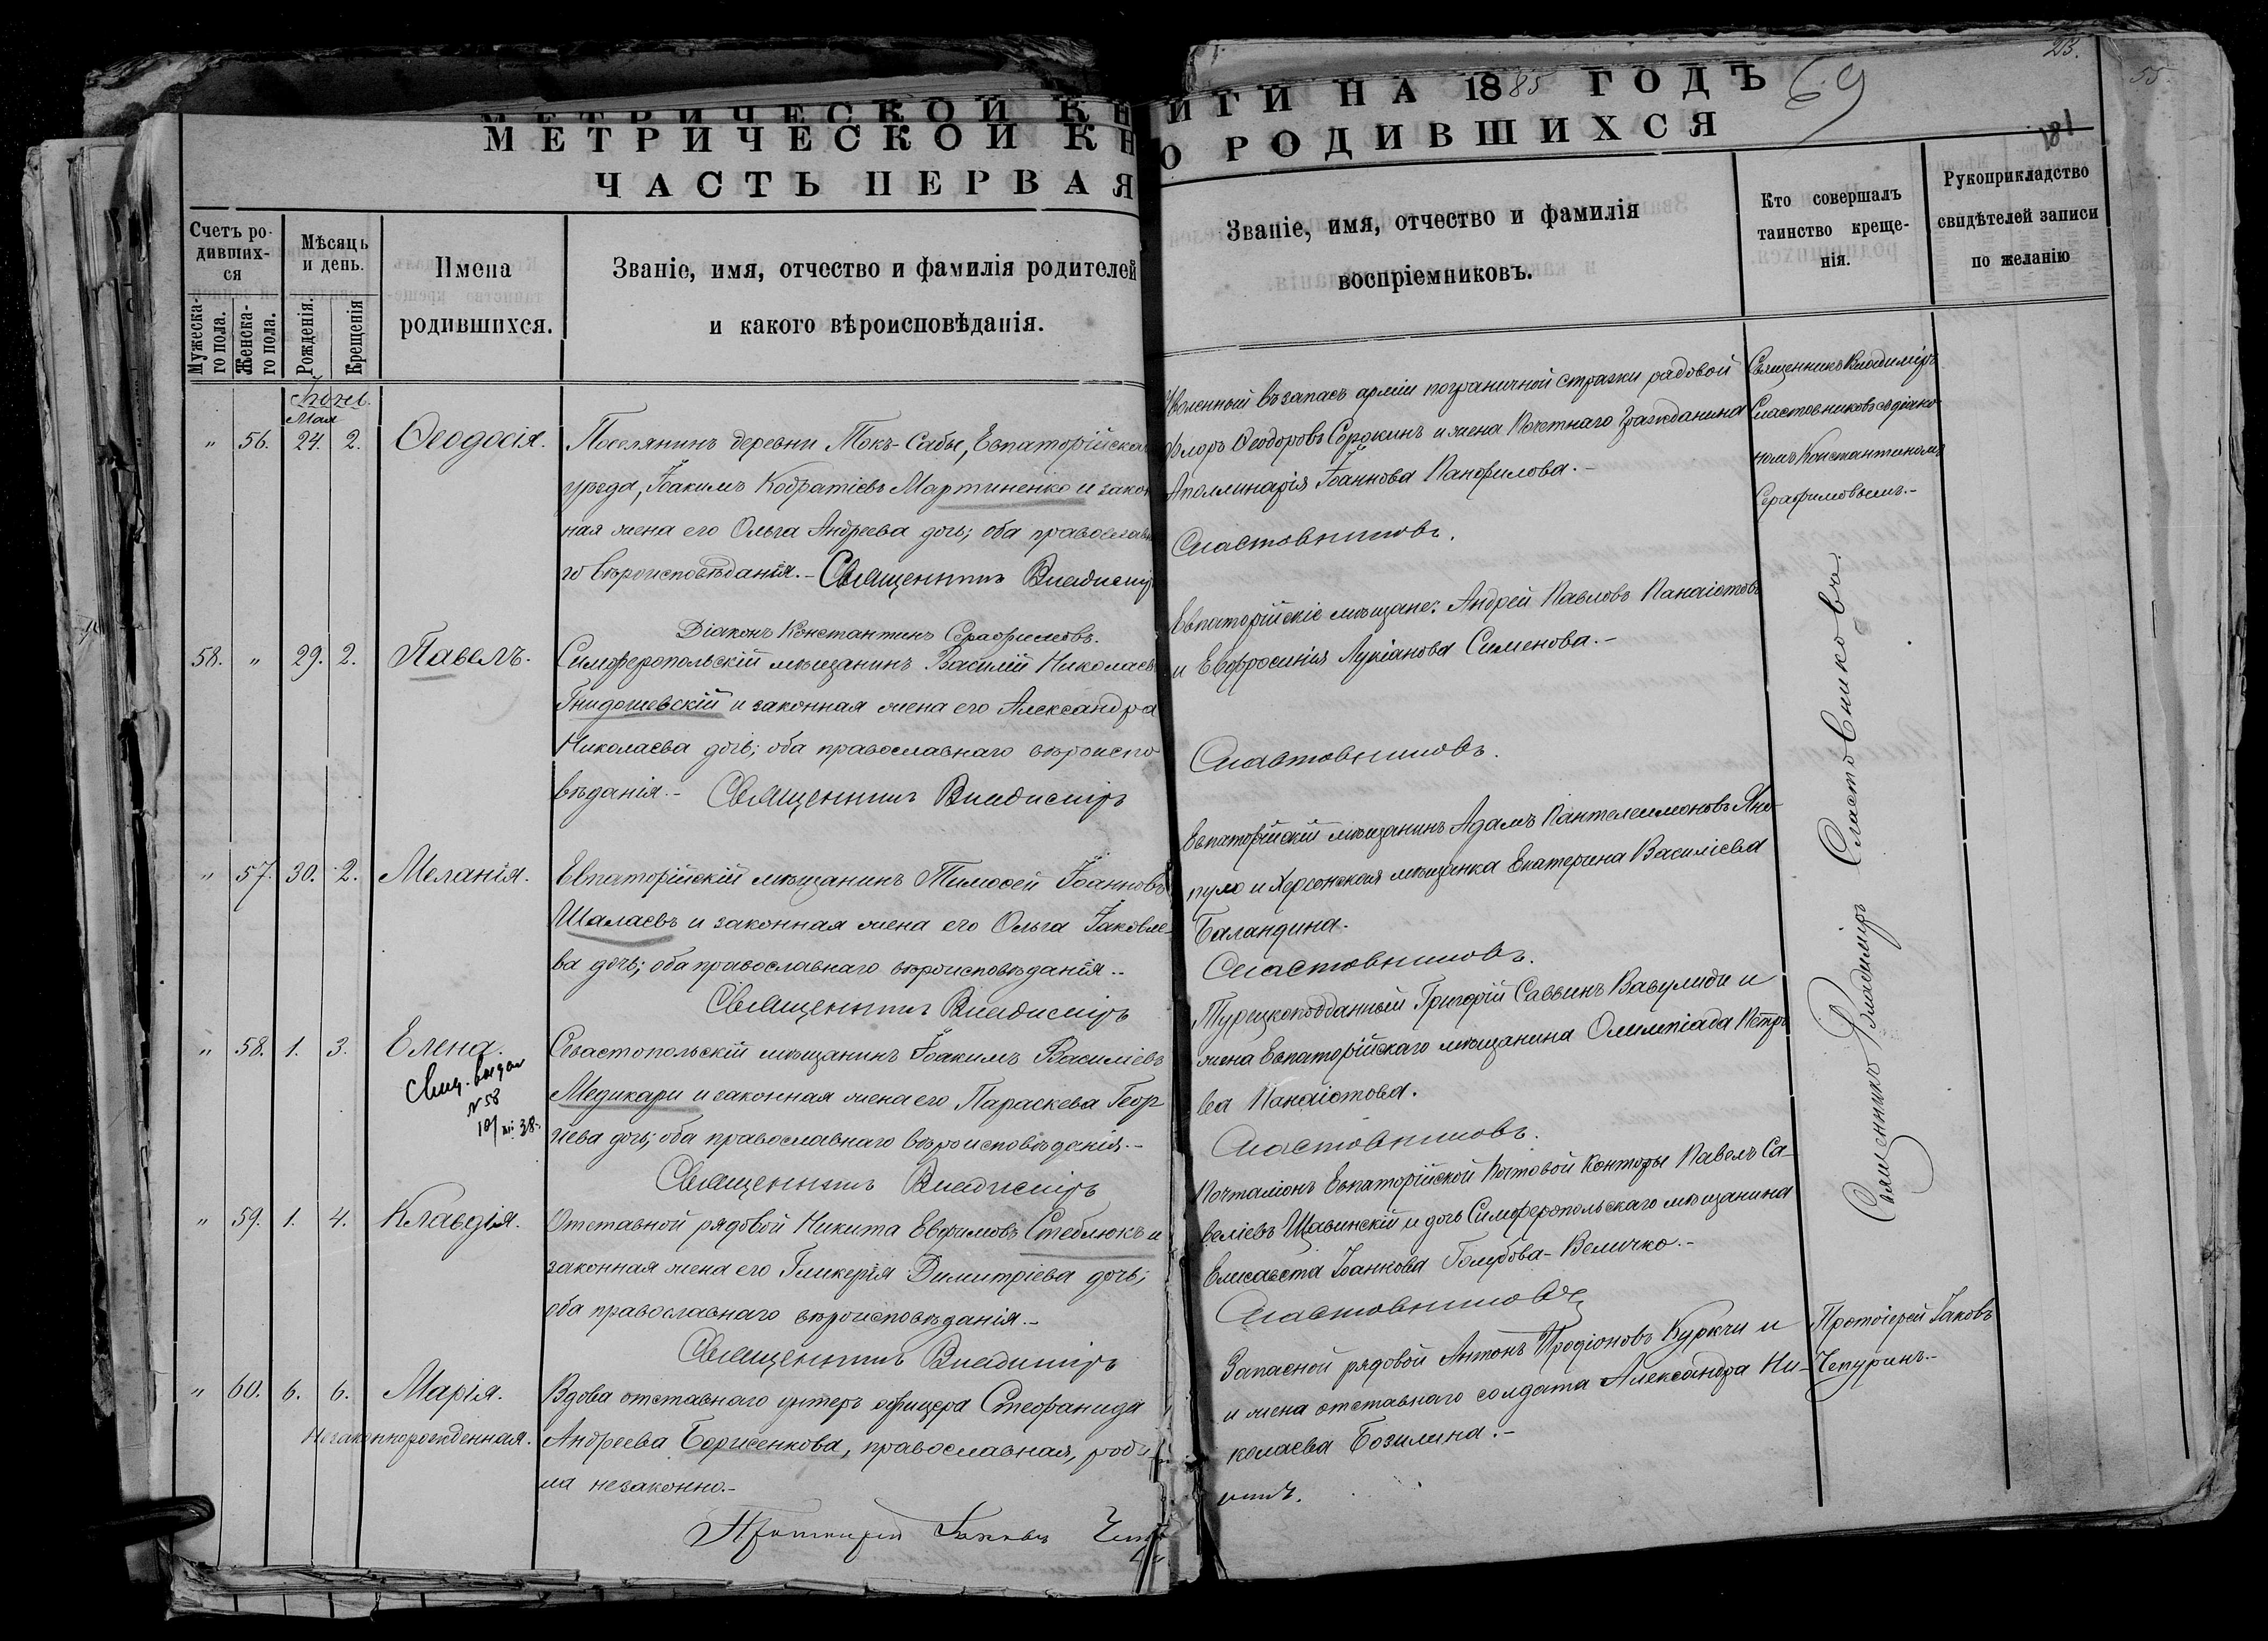 МЕТРИЧЕСКОЙ КН
МЕТРИЧЕСКОЙ КН
ЧАСТЬ ПЕРВАЯ
Счетъ ро-
дивших-
ся
Мужеска-
го пола.
Женска-
го пола.
Мѣсяцъ
и день.
Рожденія.
Крещенія
Имена
родившихся.
Званіе, имя, отчество и фамилія родителей
и какого вѣроисповѣданія.
Мая
" 56. 24. 2. Ѳеодосія.
Поселянинъ деревни Токъ-Сабы, Евпаторійска
уѣзда, Іоакимъ Кодратіевъ Мартиненко и закон
ная жена его Ольга Андреева дочь; оба православн
го вѣроисповѣданія.- Священникъ Владимір
Діаконъ Константинъ Серафимовъ.
58. " 29. 2. Павелъ.
Симферопольскій мѣщанинъ Василій Николаевъ
Гнидошевскій и законная жена его Александра
Николаева дочь; оба православнаго вѣроиспо
вѣданія.- Священникъ Владиміръ
" 57. 30. 2. Меланія.
Евпаторійскій мѣщанинъ Тимоѳей Іоанновъ
Шалаевъ и законная жена его Ольга Іаковле-
ва дочь; оба православнаго вѣроисповѣданія.-
Священникъ Владиміръ
" 58. 1. 3. Елена.
Свид. выдан
№ 58
10/XII 38.
Севастопольскій мѣщанинъ Іоакимъ Василіевъ
Медикари и законная жена его Параскева Геор
гіева дочь; оба православнаго вѣроисповѣданія.-
Священникъ Владиміръ
" 59. 1. 4. Клавдія.
Отставной рядовой Никита Евфимовъ Стеблюкъ и
законная жена его Гликерія Димитріева дочь;
оба православнаго вѣроисповѣданія.-
Священникъ Владиміръ
" 60. 6. 6. Марія.
Незаконнорожденная.
Вдова отставнаго унтеръ офицера Стефанида
Андреева Борисенкова, православная, роди
ла незаконно.-
Протоіерей Іаковъ Чеп
ИГИ НА 1885 ГОДЪ
О РОДИВШИХСЯ
69
23.
55.
181
Званіе, имя, отчество и фамилія
воспріемниковъ.
Кто совершалъ
таинство креще-
нія.
Рукоприкладство
свидѣтелей записи
по желанію
Уволенный въ запасъ арміи пограничной стражи рядовой
Флоръ Ѳеодоровъ Сорокинъ и жена Почетнаго Гражданина
Аполлинарія Іоаннова Панфилова.-
Сластовниковъ.
Священникъ Владиміръ
Сластовниковъ съ діако-
номъ Константиномъ
Серафимовымъ.-
Евпаторійскіе мѣщане: Андрей Павловъ Панаіотовъ
и Евфросинія Лукіанова Сименова.-
Сластовниковъ.
Евпаторійскій мѣщанинъ Адамъ Пантелеимоновъ Яно-
пуло и Херсонская мѣщанка Екатерина Василіева
Баландина.
Сластовниковъ.
Турецкоподданный Григорій Саввинъ Вавулиди и
жена Евпаторійскаго мѣщанина Олимпіада Петро
ва Панаіотова.
Сластовниковъ.
Почталіонъ Евпаторійской Почтовой Конторы Павелъ Са-
веліевъ Щавинскій и дочь Симферопольскаго мѣщанина
Елисавета Іоаннова Голубова-Величко.-
Сластовниковъ
Священникъ Владиміръ Сластовниковъ.
Запасной рядовой Антонъ Иродіоновъ Куркчи и
и жена отставнаго солдата Александра Ни-
колаева Бозилина.-
Протоіерей Іаковъ
Чепуринъ.-